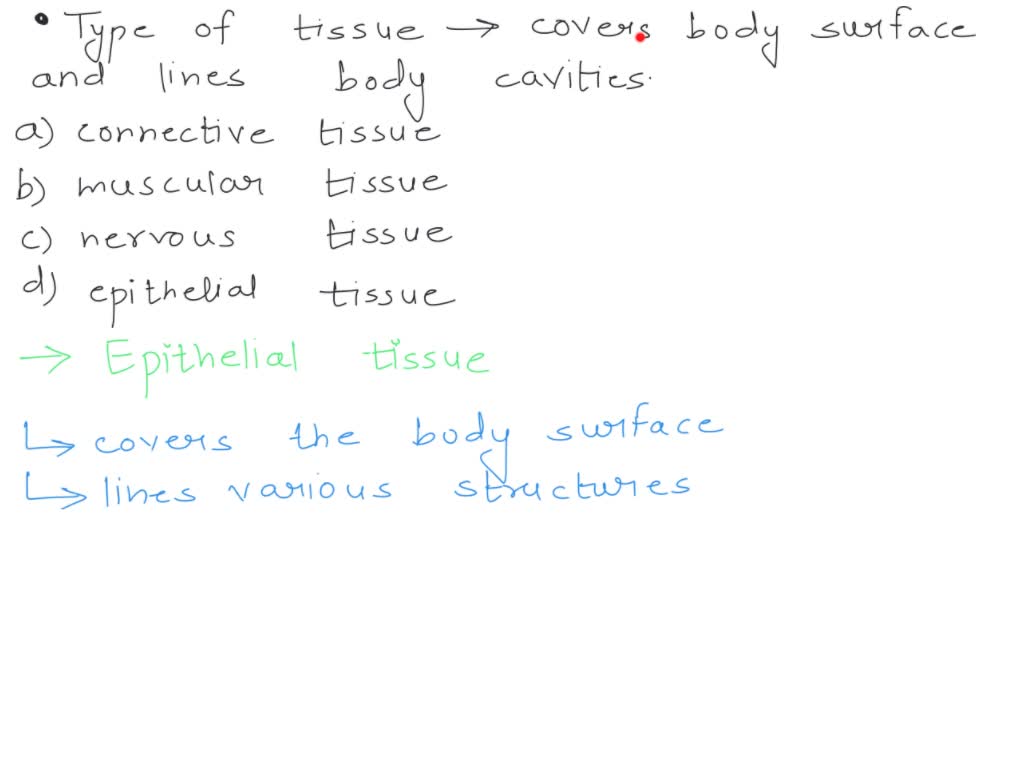 • Type of tissue → covers body surface
and lines body cavities.
a) connective tissue
b) muscular tissue
c) nervous tissue
d) epithelial tissue
→ Epithelial tissue
↳ covers the body surface
↳ lines various structures